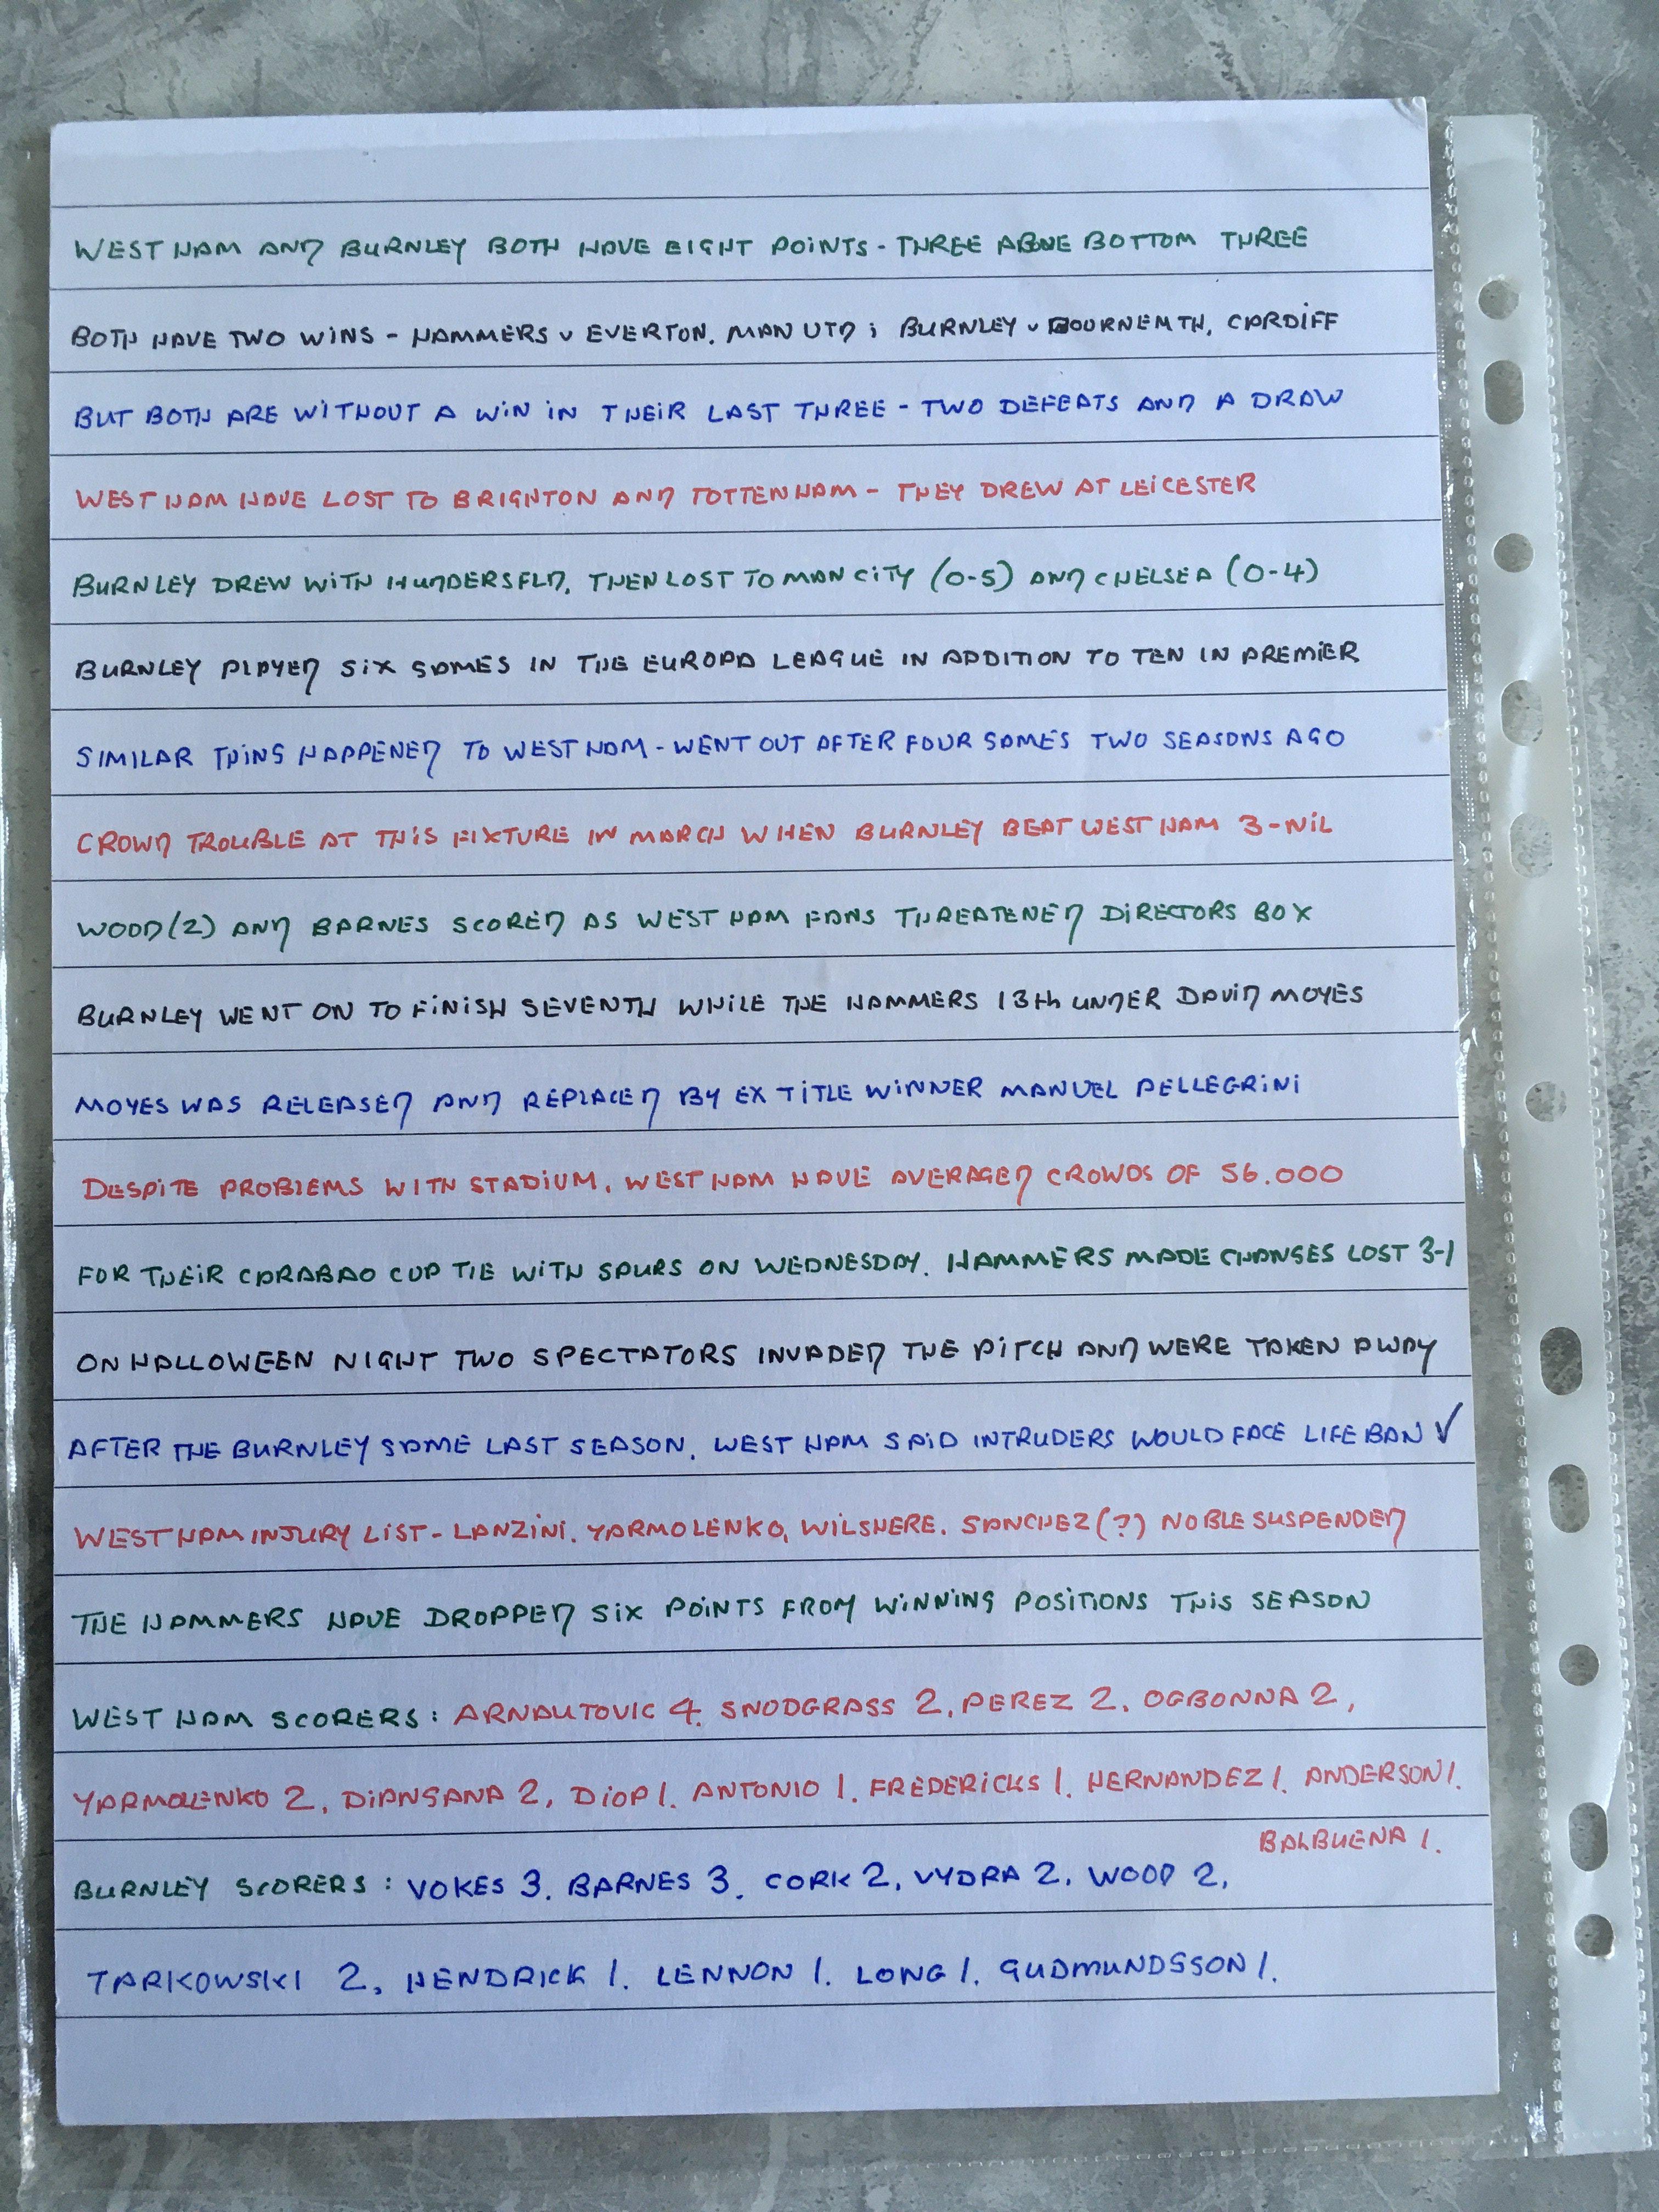 WEST HAM AND BURNLEY BOTH HAVE EIGHT POINTS - THREE ABOVE BOTTOM THREE
BOTH HAVE TWO WINS - HAMMERS v EVERTON, MAN UTD; BURNLEY v BOURNEMTH, CARDIFF
BUT BOTH ARE WITHOUT A WIN IN THEIR LAST THREE - TWO DEFEATS AND A DRAW
WEST HAM HAVE LOST TO BRIGHTON AND TOTTENHAM - THEY DREW AT LEICESTER
BURNLEY DREW WITH HUDDERSFLD, THEN LOST TO MAN CITY (0-5) AND CHELSEA (0-4)
BURNLEY PLAYED SIX GAMES IN THE EUROPA LEAGUE IN ADDITION TO TEN IN PREMIER
SIMILAR THING HAPPENED TO WEST HAM - WENT OUT AFTER FOUR GAMES TWO SEASONS AGO
CROWD TROUBLE AT THIS FIXTURE IN MARCH WHEN BURNLEY BEAT WEST HAM 3-NIL
WOOD (2) AND BARNES SCORED AS WEST HAM FANS THREATENED DIRECTORS BOX
BURNLEY WENT ON TO FINISH SEVENTH WHILE THE HAMMERS 13th UNDER DAVID MOYES
MOYES WAS RELEASED AND REPLACED BY EX TITLE WINNER MANUEL PELLEGRINI
DESPITE PROBLEMS WITH STADIUM, WEST HAM HAVE AVERAGED CROWDS OF 56.000
FOR THEIR CARABAO CUP TIE WITH SPURS ON WEDNESDAY. HAMMERS MADE CHANGES LOST 3-1
ON HALLOWEEN NIGHT TWO SPECTATORS INVADED THE PITCH AND WERE TAKEN AWAY
AFTER THE BURNLEY GAME LAST SEASON, WEST HAM SAID INTRUDERS WOULD FACE LIFE BAN ✓
WEST HAM INJURY LIST - LANZINI. YARMOLENKO, WILSHERE. SANCHEZ (?) NOBLE SUSPENDED
THE HAMMERS HAVE DROPPED SIX POINTS FROM WINNING POSITIONS THIS SEASON
WEST HAM SCORERS: ARNAUTOVIC 4. SNODGRASS 2, PEREZ 2. OGBONNA 2,
YARMOLENKO 2, DIANGANA 2, DIOP 1. ANTONIO 1. FREDERICKS 1. HERNANDEZ 1. ANDERSON 1.
BALBUENA 1.
BURNLEY SCORERS: VOKES 3. BARNES 3. CORK 2, VYDRA 2. WOOD 2,
TARKOWSKI 2, HENDRICK 1. LENNON 1. LONG 1. GUDMUNDSSON 1.